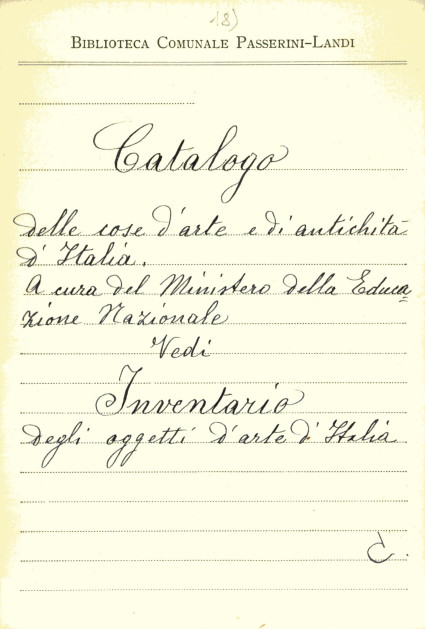 18)
BIBLIOTECA COMUNALE PASSERINI-LANDI
Catalogo
delle cose d'arte e di antichità
d'Italia.
A cura del Ministero della Educa=
zione Nazionale
Vedi
Inventario
degli oggetti d'arte d'Italia
C.